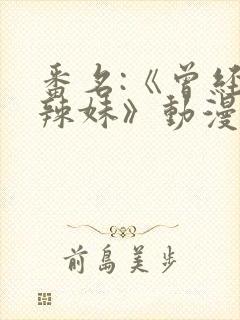 番名:《曾経
辣妹》動漫
前島美步